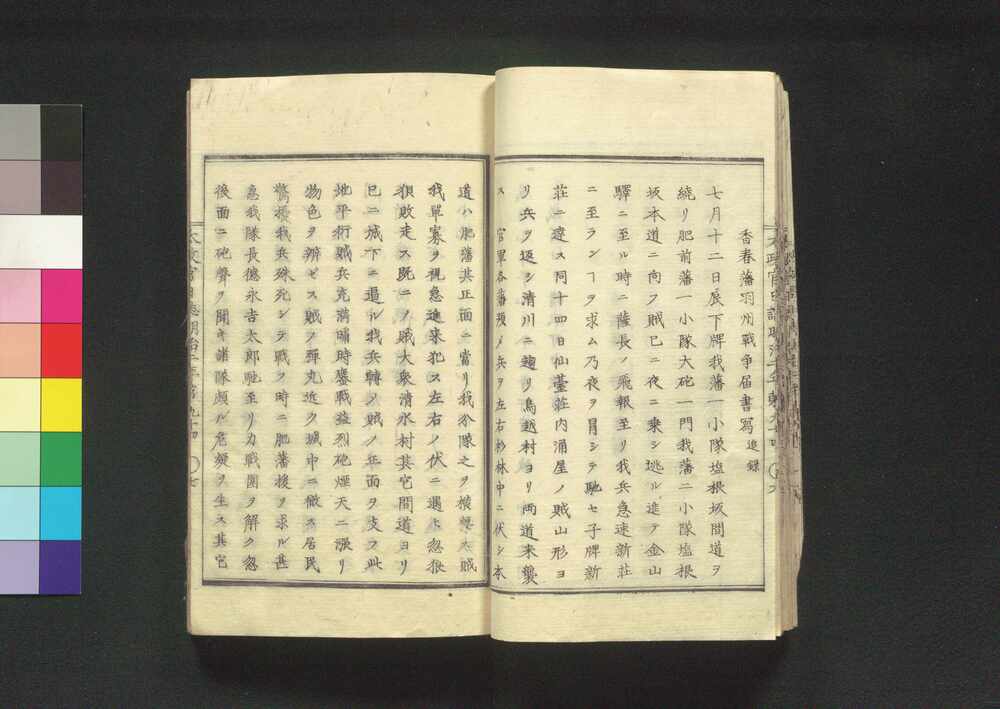 香春藩羽州戰爭届書寫 追録
七月十二日辰下牌我藩一小隊塩根坂間道ヲ
繞リ肥前藩一小隊大砲一門我藩二小隊塩根
坂本道ニ向フ賊已ニ夜ニ乗シ逃ル進テ金山
驛ニ至ル時ニ薩長ノ飛報至リ我兵急速新荘
ニ至ランヿヲ求ム乃夜ヲ冒シテ馳セ子牌新
荘ニ達ス同十四日仙臺荘内涌屋ノ賊山形ヨ
リ兵ヲ返シ清川ニ趣リ鳥越村ヨリ両道来襲
ス 官軍各藩頒メ兵ヲ左右杉林中ニ伏シ本
道ハ肥藩其正面ニ當リ我分隊之ヲ横撃ス賊
我單寡ヲ視急進来犯ス左右ノ伏ニ遇ヒ忽狼
狽敗走ス既ニノ賊大衆清水村其它間道ヨリ
已ニ城下ニ逼ル我兵轉ノ賊ノ正面ヲ支フ此
地平衍賊兵充満晴時鏖戰益烈砲煙天ニ漲リ
物色ヲ辨ゼス賊ノ弾丸近ク城中ニ徹ス居民
驚擾我兵殊死シテ戰フ時ニ肥藩援ヲ求ル甚
急我隊長德永吉太郎馳至リ力戰圍ヲ解ク忽
後面ニ砲聲ヲ聞キ諸隊頗ル危疑ヲ生ス其它
太政官日誌明治二年第九十四 七